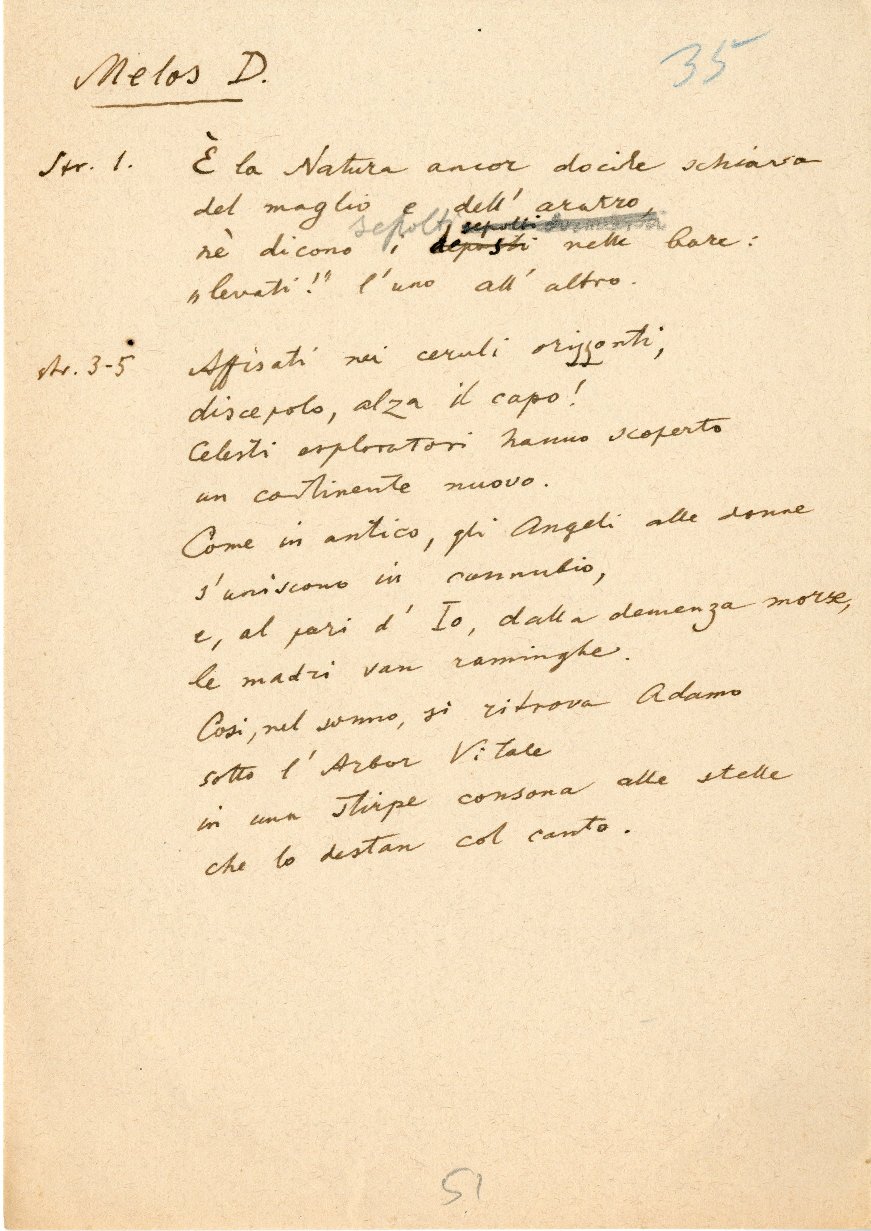 Melos D.
35
Str. 1. È la Natura ancor docile schiava
del maglio e dell' aratro,
sepolti sepolti dormienti
nè dicono i deposti nelle bare:
„levati!" l'uno all' altro.
str. 3-5 Affisati nei ceruli orizzonti,
discepolo, alza il capo!
Celesti esploratori hanno scoperto
un continente nuovo.
Come in antico, gli Angeli alle donne
s'uniscono in connubio,
e, al pari d' Io, dalla demenza morse,
le madri van raminghe.
Così, nel sonno, si ritrova Adamo
sotto l' Arbor Vitale
in una stirpe consona alle stelle
che lo destan col canto.
51